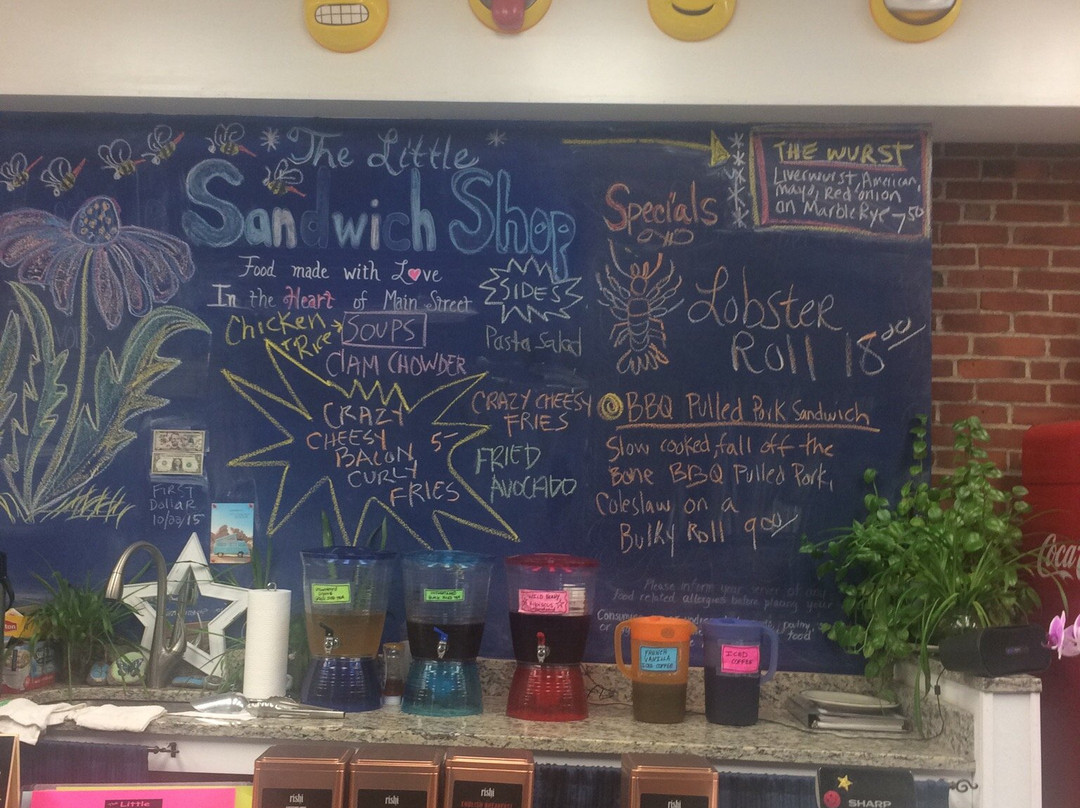 The Little
Sandwich Shop
Food made with Love
In the Heart of Main Street
Chicken
+ Rice
SOUPS
CLAM CHOWDER
SIDES
Pasta Salad
CRAZY CHEESY
FRIES
FRIED
AVOCADO
CRAZY
CHEESY 5-
BACON
CURLY
FRIES
FIRST
Dollar
10/23/15
Specials
THE WURST
Liverwurst, American,
mayo, Red onion
on Marble Rye 7.50
Lobster
Roll 18.00
BBQ Pulled Pork Sandwich
Slow cooked, fall off the
Bone BBQ Pulled Pork,
Coleslaw on a
Bulky Roll 9.00
Please inform your server of any
food related allergies before placing your
food
FRENCH
VANILLA
ICED COFFEE
ICED
COFFEE
Coca
rishi
rishi
rishi
rishi
THE Little
SHARP